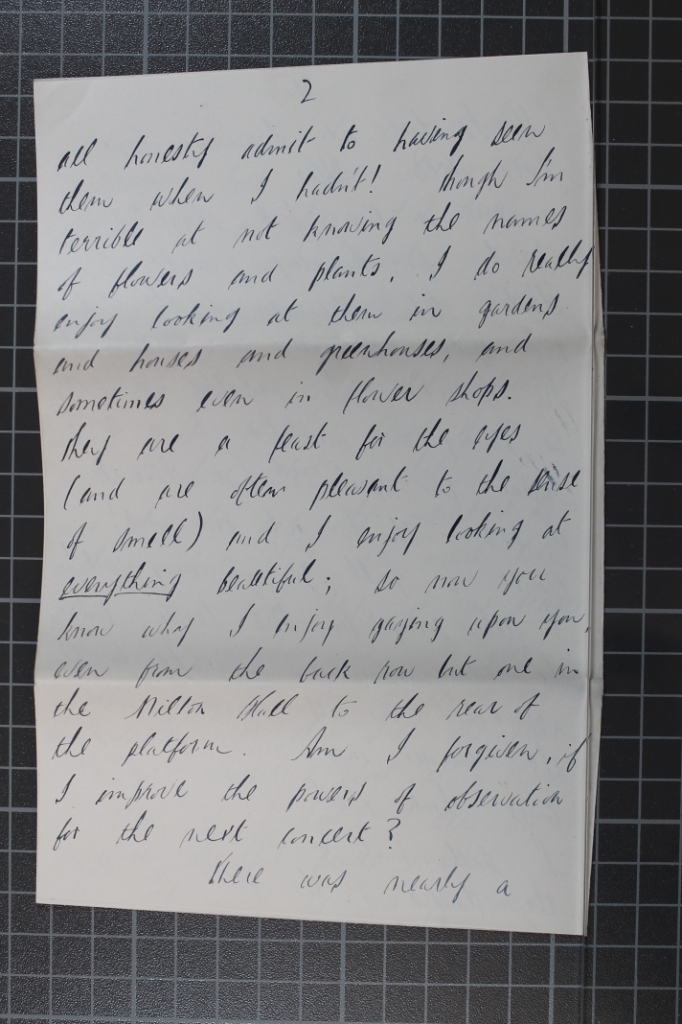 2
all honesty admit to having seen
them when I hadn't! Though I'm
terrible at not knowing the names
of flowers and plants, I do really
enjoy looking at them in gardens
and houses and greenhouses, and
sometimes even in flower shops.
They are a feast for the eyes
(and are often pleasant to the sense
of smell) and I enjoy looking at
everything beautiful; so now you
know why I enjoy gazing upon you,
even from the back row but one in
the Milton Hall to the rear of
the platform. Am I forgiven, if
I improve the powers of observation
for the next concert?
There was nearly a